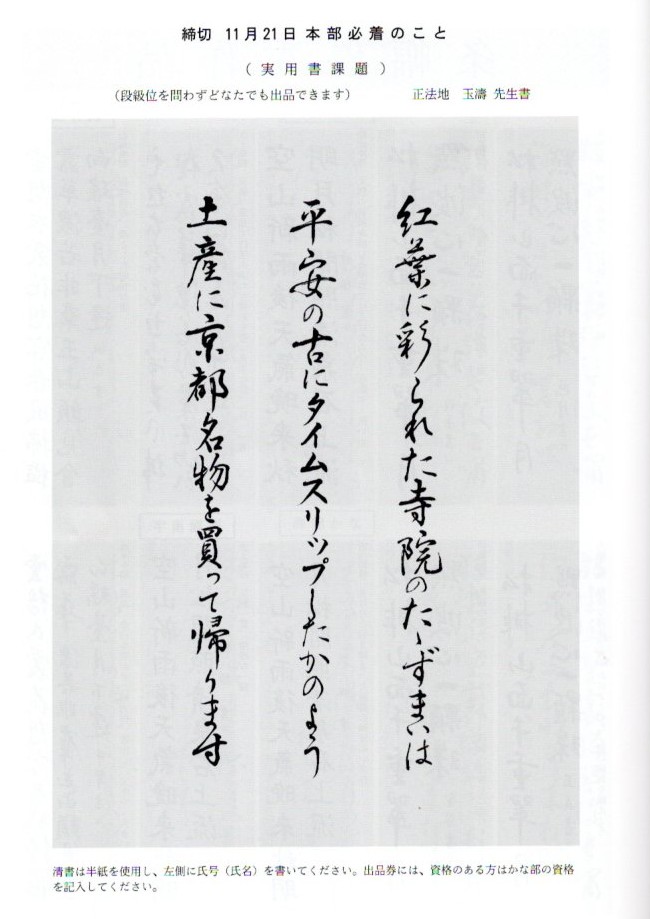 締切 11月21日本部必着のこと
（実用書課題）
（段級位を問わずどなたでも出品できます） 正法地 玉濤 先生書
紅葉に彩られた寺院のたゝずまいは
平安の古にタイムスリップしたかのよう
土産に京都名物を買って帰ります
清書は半紙を使用し、左側に氏号（氏名）を書いてください。出品券には、資格のある方はかな部の資格
を記入してください。